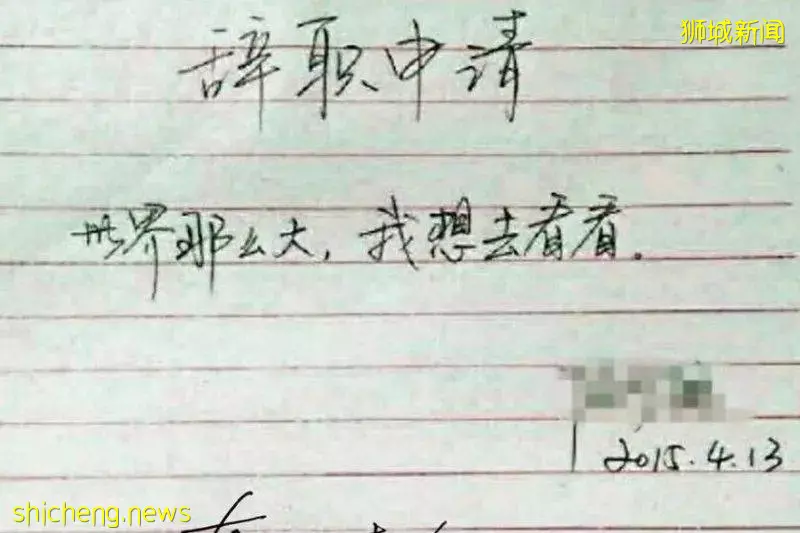 狮城新闻
辞职申请
世界那么大，我想去看看。
2015.4.13
shicheng.news